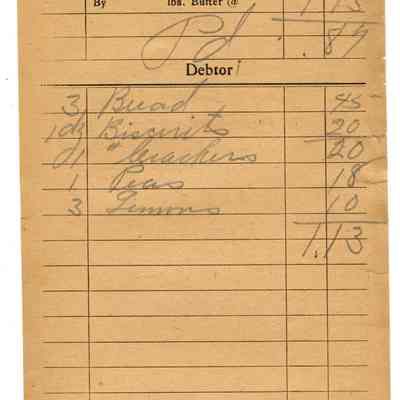 By lbs. Butter @ 1 13
Pd .87
Debtor
3 Bread 45
1 dz Biscuits 20
1 " Crackers 20
1 Peas 18
3 Lemons 10
1.13